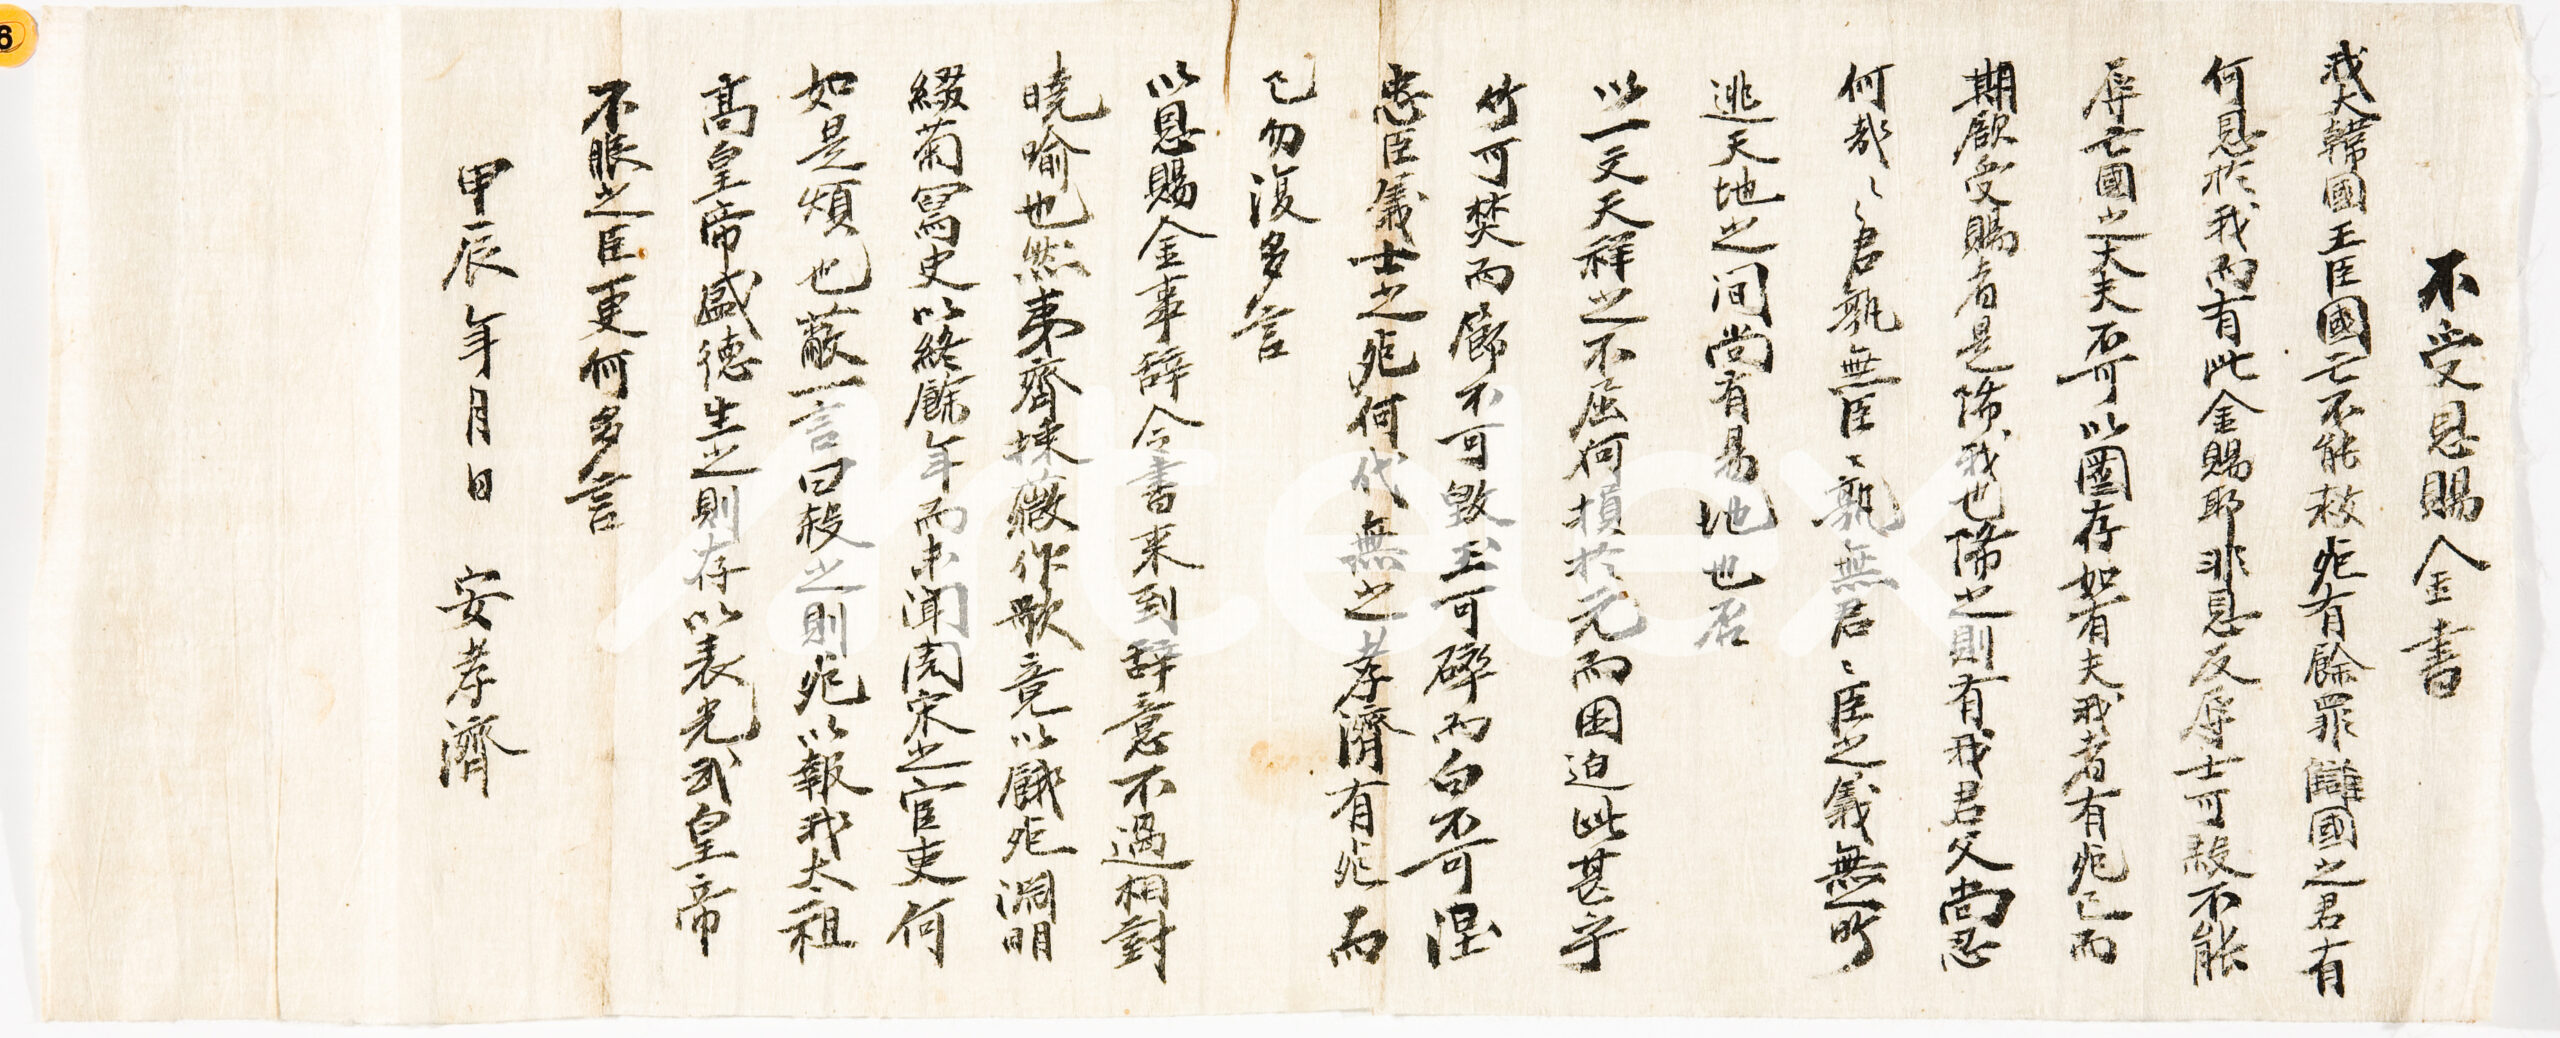 不受恩賜金書
我大韓國王臣國亡不能救死有餘罪讎國之君有
何恩於我而有此金賜耶非恩反辱士可殺不能
辱亡國之大夫不可以圖存如有夫我者有死已而
期欲受賜者是降我也降之則有我君父尚忍
何哉〻君孰無臣〻孰無君〻臣之義無所
逃天地之间尚有易地也否
以一文天祥之不屈何損於元而困迫此甚乎
竹可焚而節不可毀玉可碎而白不可涅
忠臣義士之死何代無之孝濟有死而
已勿復多言
以恩賜金事辞令書来到辞意不過相對
曉喻也然夷齊採薇作歌竟以餓死淵明
綴菊寫史以終餘年而未聞宋之官吏何
如是煩也蔽一言曰殺之則死以報我太祖
高皇帝盛德生之則存以表光武皇帝
不脹之臣更何多言
甲辰年月日 安孝濟
6
artex